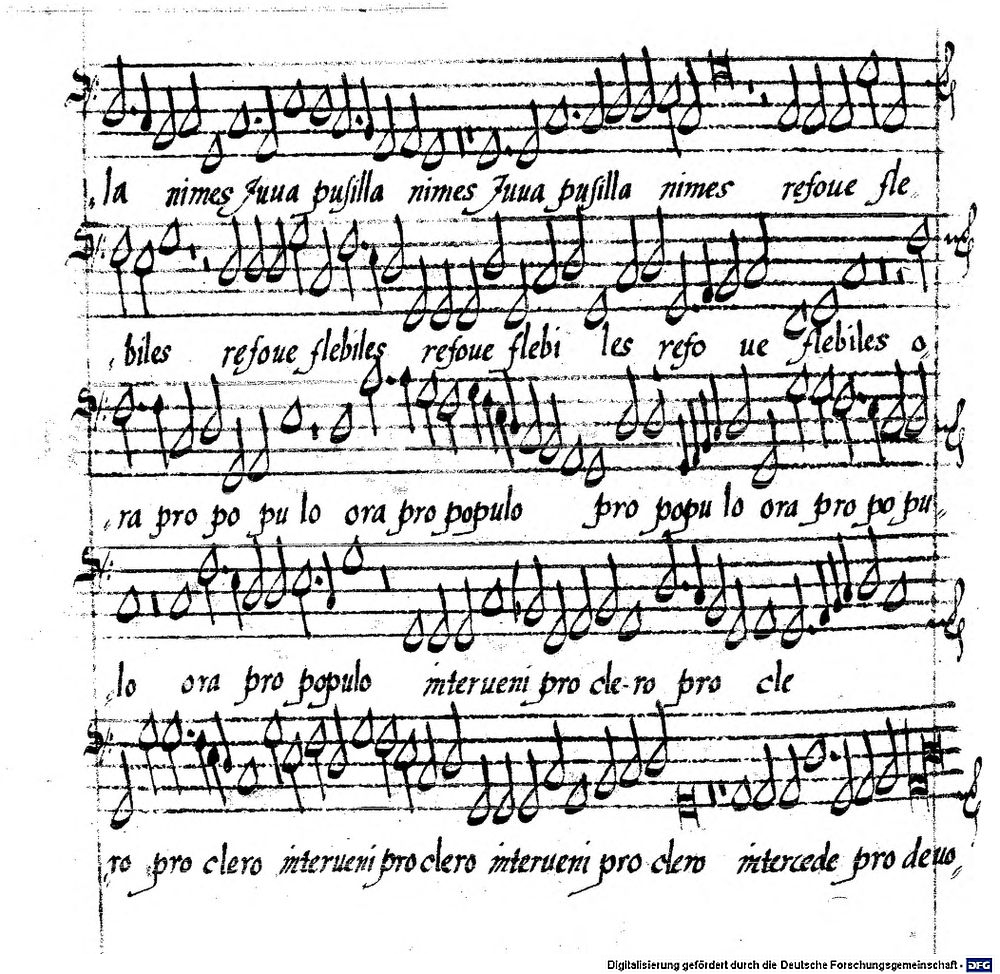 la nimes Juua pusilla nimes Juua pusilla nimes refoue fle
biles refoue flebiles refoue flebi les refo ue flebiles o
ra pro po pu lo ora pro populo pro popu lo ora pro po pu
lo ora pro populo interueni pro cle-ro pro cle
ro pro clero interueni pro clero interueni pro clero intercede pro deuo
Digitalisierung gefördert durch die Deutsche Forschungsgemeinschaft - DFG